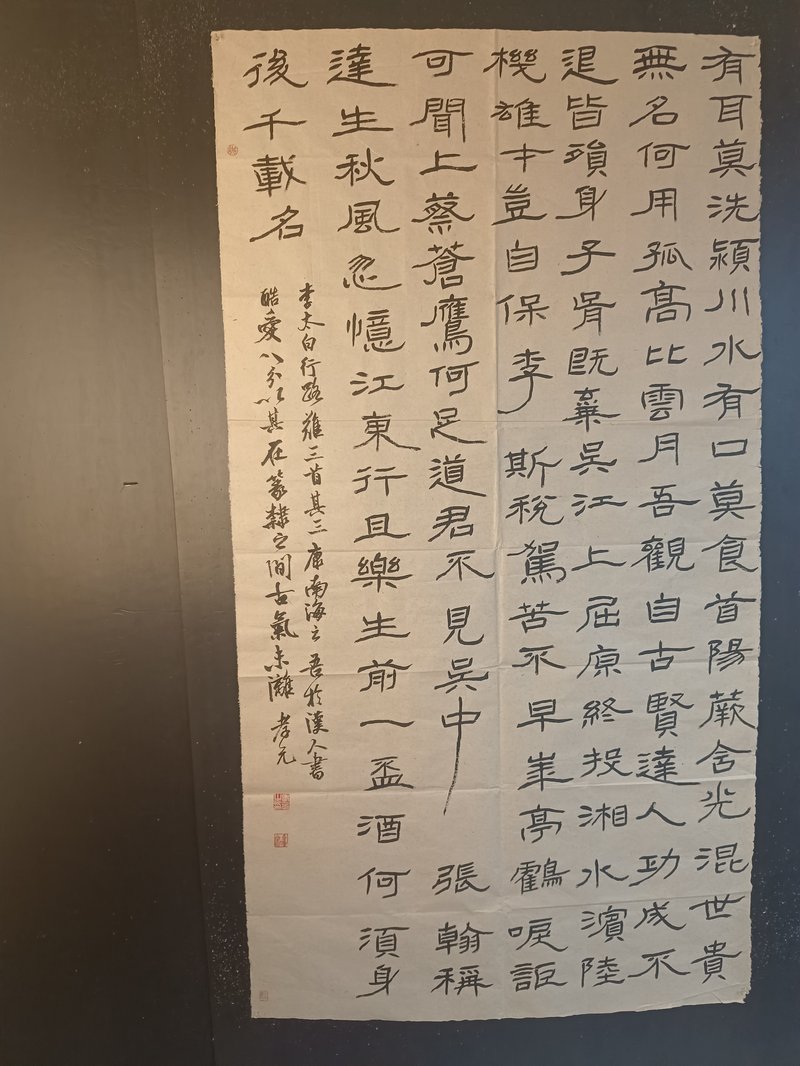 有耳莫洗潁川水有口莫食首陽蕨含光混世貴
無名何用孤高比雲月吾觀自古賢達人功成不
退皆殞身子胥既棄吳江上屈原終投湘水濱陸
機雄才豈自保李斯稅駕苦不早華亭鶴唳詎
可聞上蔡蒼鷹何足道君不見吳中張翰稱
達生秋風忽憶江東行且樂生前一盃酒何須身
後千載名
李太白行路難三首其三康南海云吾於漢人書
酷愛八分以其在篆隸之間古氣未灕 孝元